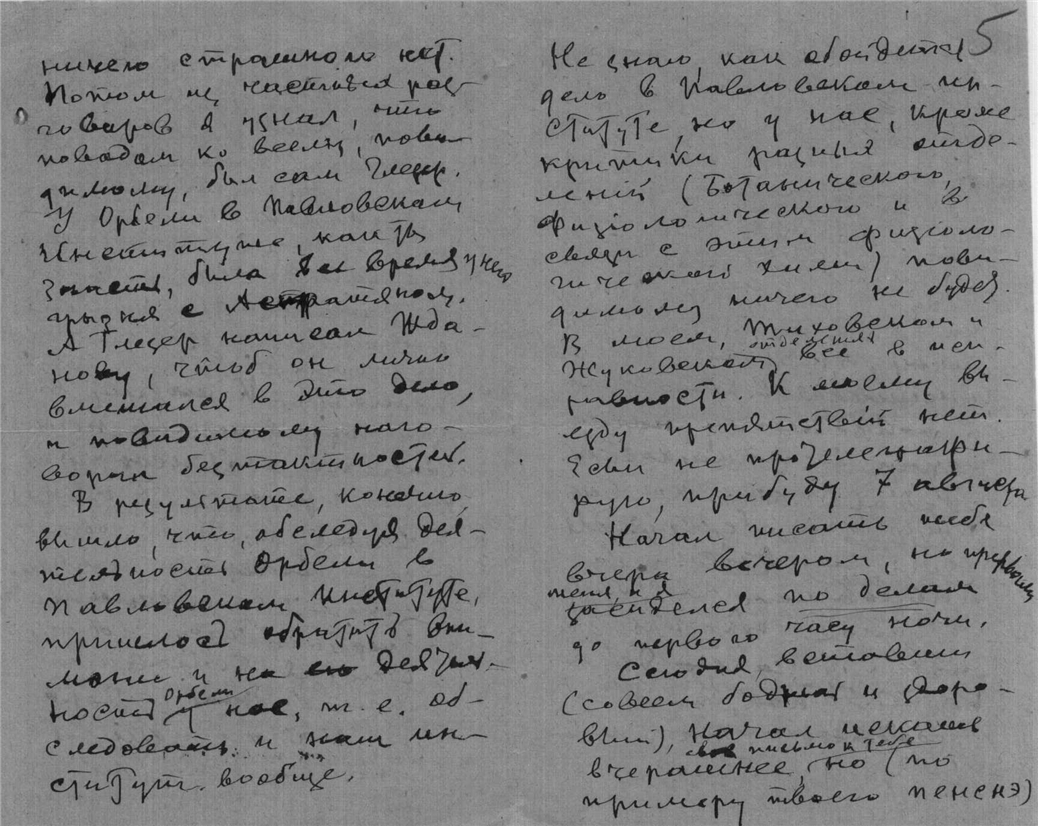 ничего страшного нет.
Потом из частных раз-
говоров я узнал, что
поводом ко всему, пови-
димому, был сам Глезер.
У Орбели в Павловском
Институте, как ты
знаешь, была все время у него
грызня с Асратяном.
А Глезер написал Жда-
нову, чтоб он лично
вмешался в это дело,
и повидимому наго-
ворил бестактностей.
В результате, конечно
вышло, что, обследуя дея-
тельность Орбели в
Павловском Институте,
пришлось обратить вни-
мание и на его деятель-
ность Орбели у нас, т.е. об-
следовать и наш ин-
ститут вообще.
5
Не знаю, как обойдется
дело в Павловском ин-
ституте, но у нас, кроме
критики разных отде-
лений (Ботанического,
Физіологического и в
связи с этим физіоло-
гической химии) пови-
димому ничего не будет.
В моем, Тиховском и
отделениях
Жуковском все в исп-
равности. К моему вы-
езду препятствий нет.
Если не протелеграфи-
рую, прибуду 7 августа
Начал писать тебе
вчера вечером, но прервали
меня, и я
засиделся по делам
до первого часу ночи.
Сегодня, вставши
(совсем бодрый и здоро-
вый), начал искать
свое письмо к тебе
вчерашнее, но (по
примеру твоего пенснэ)